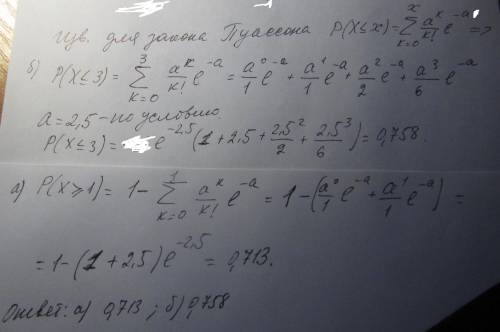 изв. для закона Пуассона P(X≤x)=∑_{k=0}^{x} a^k/k! e^{-a} =>
б) P(X≤3) = ∑_{k=0}^{3} a^k/k! e^{-a} = a^0/1 e^{-a} + a^1/1 e^{-a} + a^2/2 e^{-a} + a^3/6 e^{-a}
a=2,5 - по условию.
P(X≤3) = e^{-2,5} (1+2,5+2,5^2/2+2,5^3/6) = 0,758.
а) P(X≥1) = 1- ∑_{k=0}^{1} a^k/k! e^{-a} = 1-(a^0/1 e^{-a} + a^1/1 e^{-a}) =
=1-(1+2,5)e^{-2,5} = 0,713.
Ответ: а) 0,713 ; б) 0,758